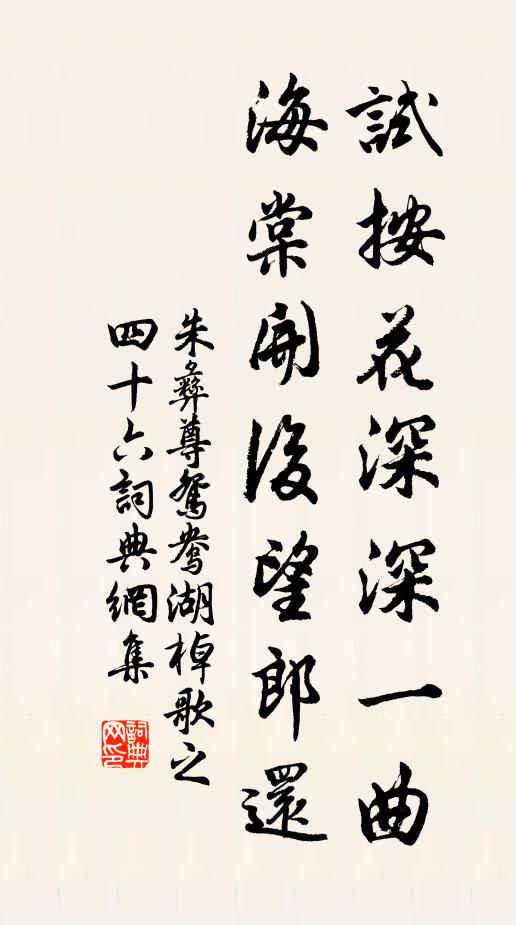 試按花深深一曲
海棠開後望郎還
朱彝尊鴛鴦湖棹歌之
四十六詞典網集
詞典
网印